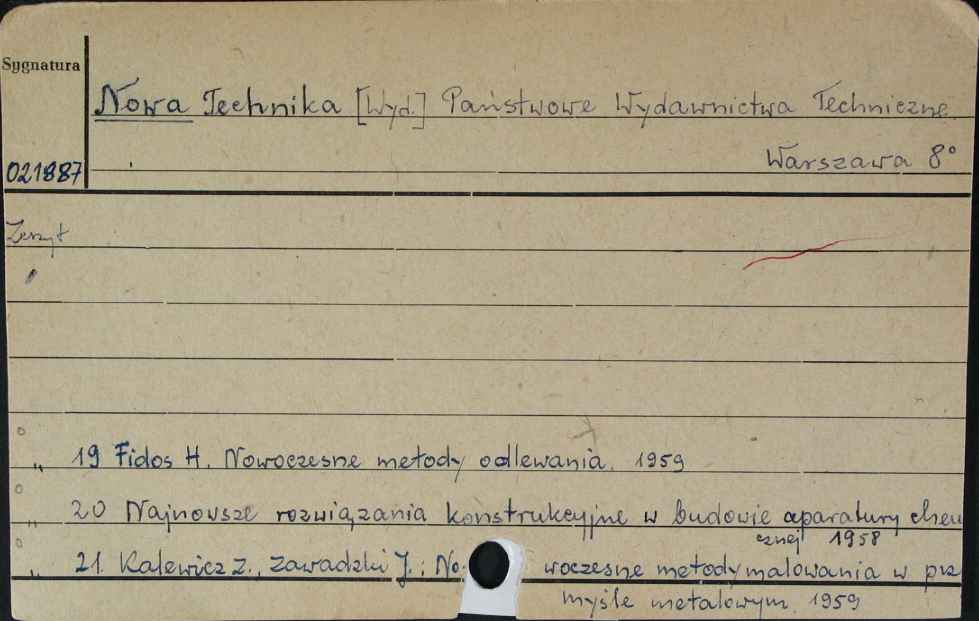 Sygnatura
Nowa Technika [Wyd.] Państwowe Wydawnictwa Techniczne
Warszawa 8°
021887
Zeszyt
„ 19 Fidos H. Nowoczesne metody odlewania. 1959
„ 20 Najnowsze rozwiązania konstrukcyjne w budowie aparatury chemi
cznej 1958
„ 21 Kalewicz Z., Zawadzki J.: No woczesne metody malowania w prze
myśle metalowym. 1959